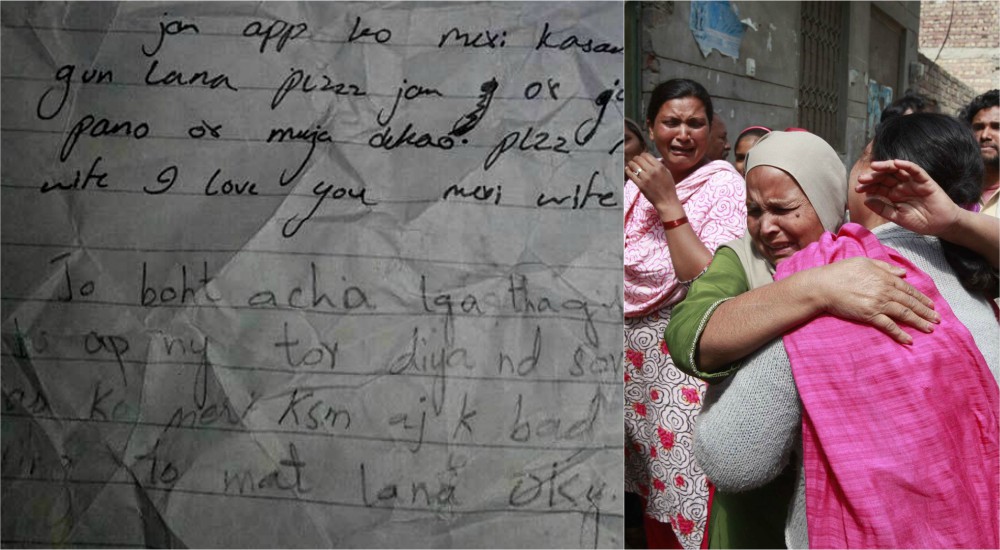 jan app ko meri kasam
gun lana plzzz jan or
pano or muja dekao. plzz
wife I love you meri wife
Jo boht acha lga tha
ap ny tor diya nd
ko meri ksm aj k bad
to mat lana oky.